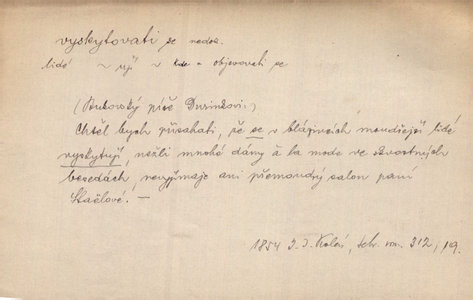 vyskytovati se nedok.
lidé ~ ují ~ kde - objevovati se
(Bukovský píše Durinkovi:)
Chtěl bych přísahati, že se v blázincích moudřejší lidé
vyskytují, nežli mnohé dámy à la mode ve skvostných
besedách, nevyjímaje ani přemoudrý salon paní
Staëlové. —
1854 J. J. Kolár, 312, 19.